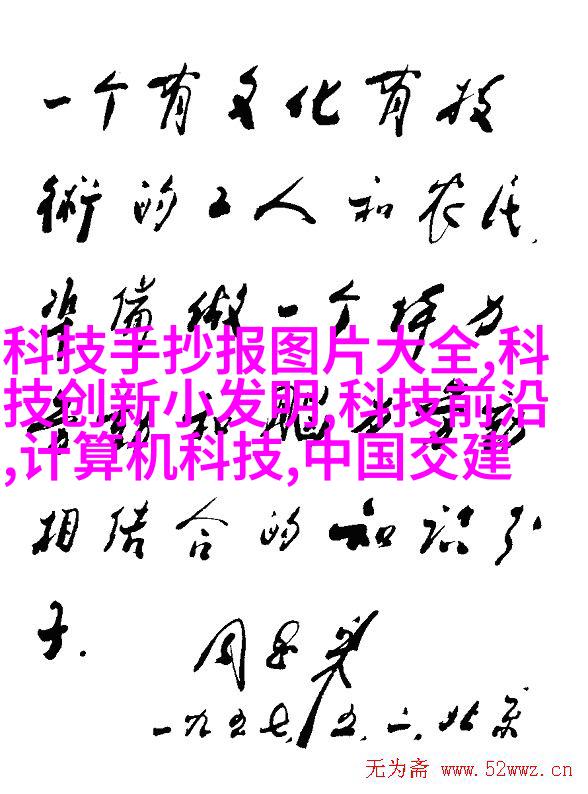 一个有文化有技
術的工人和农民,
準備做一个体力
科技手抄报图片大全,科
技创新小发明,科技前沿
,计算机科技,中国交建
劳动和脑力劳动
相结合的知识分
子.
周恩来
一九五七,五.二.北京
无为斋 www.52wwz.cn